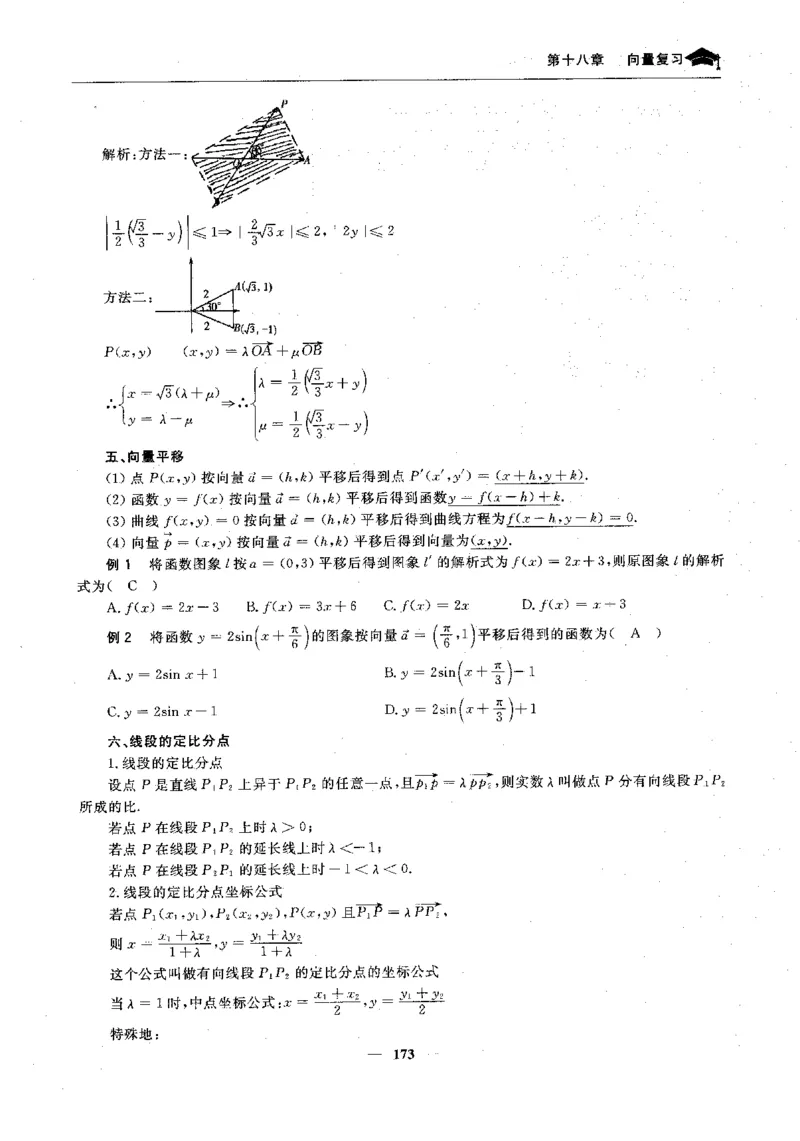 第十八章 向量复习
P
解析:方法一:
A
|1/2(√3/3-y)|≤1⇒|2/3√3x|≤2, 2y|≤2
2 A(√3,1)
方法二:
30°
2 B(√3,-1)
P(x,y) (x,y)=λOA+μOB
∴{x=√3(λ+μ) y=λ-μ ⇒∴{λ=1/2(√3/3x+y) μ=1/2(√3/3x-y)
五、向量平移
(1)点P(x,y)按向量a⃗=(h,k)平移后得到点P′(x′,y′)=(x+h,y+k).
(2)函数y=f(x)按向量a⃗=(h,k)平移后得到函数y=f(x-h)+k.
(3)曲线f(x,y)=0按向量a⃗=(h,k)平移后得到曲线方程为f(x-h,y-k)=0.
(4)向量p⃗=(x,y)按向量a⃗=(h,k)平移后得到向量为(x,y).
例1 将函数图象l按a=(0,3)平移后得到图象l′的解析式为f(x)=2x+3,则原图象l的解析
式为( C )
A.f(x)=2x-3 B.f(x)=3x+6 C.f(x)=2x D.f(x)=x+3
例2 将函数y=2sin(x+π/6)的图象按向量a⃗=(π/6,1)平移后得到的函数为( A )
A.y=2sin x+1 B.y=2sin(x+π/3)-1
C.y=2sin x-1 D.y=2sin(x+π/3)+1
六、线段的定比分点
1.线段的定比分点
设点P是直线P₁P₂上异于P₁P₂的任意一点,且p₁p=λpp₂,则实数λ叫做点P分有向线段P₁P₂
所成的比.
若点P在线段P₁P₂上时λ>0;
若点P在线段P₁P₂的延长线上时λ<-1;
若点P在线段P₂P₁的延长线上时-1<λ<0.
2.线段的定比分点坐标公式
若点P₁(x₁,y₁),P₂(x₂,y₂),P(x,y)且P₁P=λPP₂,
则x=(x₁+λx₂)/(1+λ),y=(y₁+λy₂)/(1+λ)
这个公式叫做有向线段P₁P₂的定比分点的坐标公式
当λ=1时,中点坐标公式:x=(x₁+x₂)/2,y=(y₁+y₂)/2
特殊地:
— 173